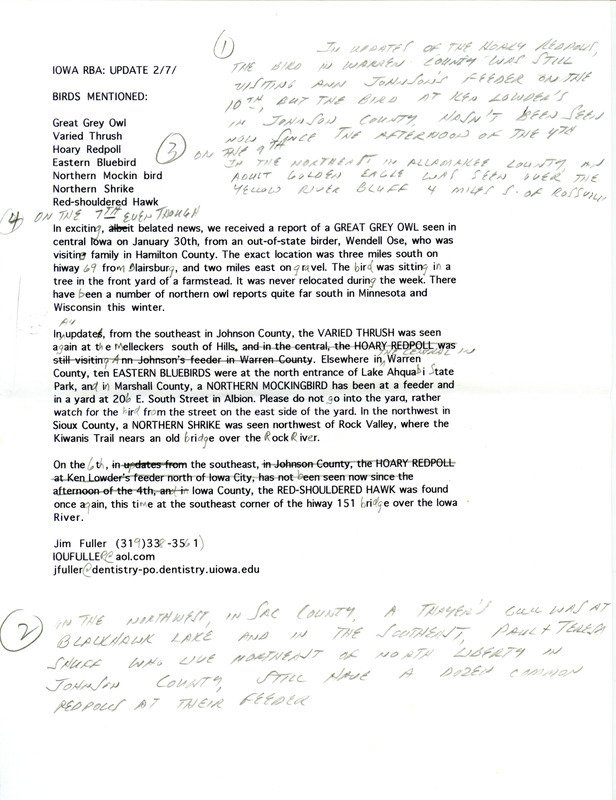 ① IN UPDATES OF THE HOARY REDPOLL,
THE BIRD IN WARREN COUNTY WAS STILL
VISITING ANN JOHNSON'S FEEDER ON THE
10TH, BUT THE BIRD AT KEN LOWDER'S
IN JOHNSON COUNTY, HASN'T BEEN SEEN
NOW SINCE THE AFTERNOON OF THE 4TH
IOWA RBA: UPDATE 2/7/
BIRDS MENTIONED:
Great Grey Owl
Varied Thrush
Hoary Redpoll
Eastern Bluebird
Northern Mockin bird
Northern Shrike
Red-shouldered Hawk
③ ON THE 9TH
IN THE NORTHEAST IN ALLAMAKEE COUNTY, AN
ADULT GOLDEN EAGLE WAS SEEN OVER THE
YELLOW RIVER BLUFF 4 MILES S. OF ROSSVILL
④ ON THE 7TH EVEN THOUGH
In exciting, albeit belated news, we received a report of a GREAT GREY OWL seen in
central Iowa on January 30th, from an out-of-state birder, Wendell Ose, who was
visiting family in Hamilton County. The exact location was three miles south on
hiway 69 from Blairsburg, and two miles east on gravel. The bird was sitting in a
tree in the front yard of a farmstead. It was never relocated during the week. There
have been a number of northern owl reports quite far south in Minnesota and
Wisconsin this winter.
In updates, from the southeast in Johnson County, the VARIED THRUSH was seen
again at the Melleckers south of Hills, and in the central, the HOARY REDPOLL was
still visiting Ann Johnson's feeder in Warren County. Elsewhere in THE CENTRAL IN Warren
County, ten EASTERN BLUEBIRDS were at the north entrance of Lake Ahquabi State
Park, and in Marshall County, a NORTHERN MOCKINGBIRD has been at a feeder and
in a yard at 206 E. South Street in Albion. Please do not go into the yard, rather
watch for the bird from the street on the east side of the yard. In the northwest in
Sioux County, a NORTHERN SHRIKE was seen northwest of Rock Valley, where the
Kiwanis Trail nears an old bridge over the Rock River.
On the 6th, in updates from the southeast, in Johnson County, the HOARY REDPOLL
at Ken Lowder's feeder north of Iowa City, has not been seen now since the
afternoon of the 4th, and in Iowa County, the RED-SHOULDERED HAWK was found
once again, this time at the southeast corner of the hiway 151 bridge over the Iowa
River.
Jim Fuller (319)338-3561)
IOUFULLER@aol.com
jfuller@dentistry-po.dentistry.uiowa.edu
② IN THE NORTHWEST, IN SAC COUNTY, A THAYER'S GULL WAS AT
BLACKHAWK LAKE AND IN THE SOUTHEAST, PAUL + TERESA
SNUFF WHO LIVE NORTHEAST OF NORTH LIBERTY IN
JOHNSON COUNTY, STILL HAVE A DOZEN COMMON
REDPOLLS AT THEIR FEEDER